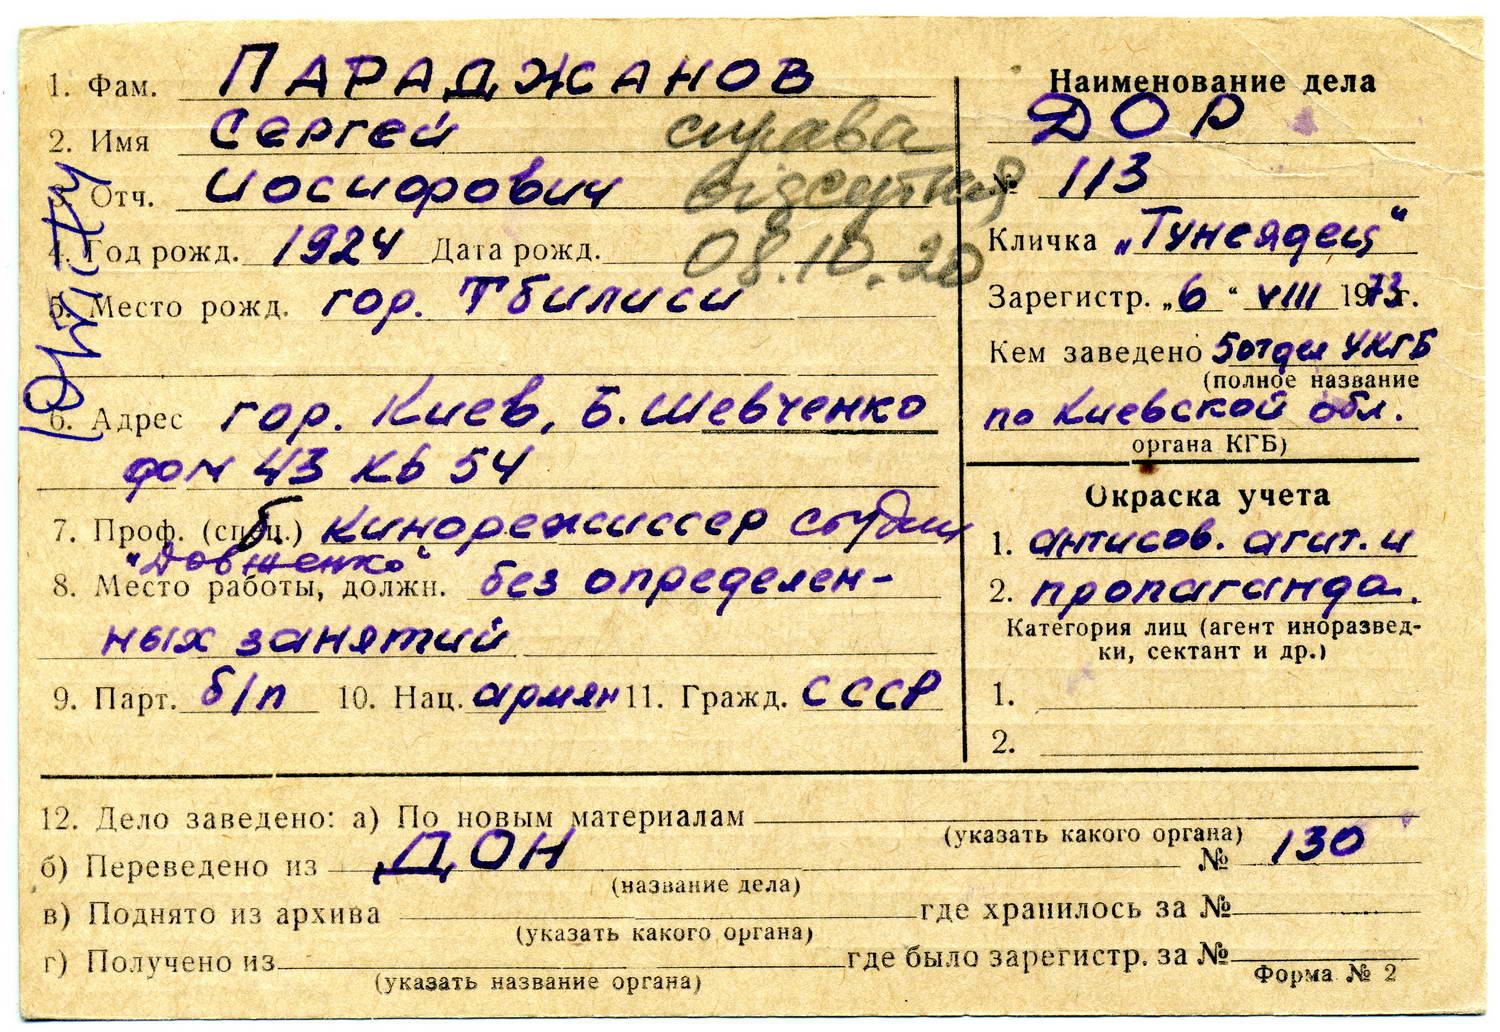 1. Фам. ПАРАДЖАНОВ
2. Имя Сергей
3. Отч. Иосифович
справа
відсутня
08.10.20
4. Год рожд. 1924 Дата рожд.
5. Место рожд. гор. Тбилиси
6. Адрес гор. Киев, Б. Шевченко
дом 43 кв 54
7. Проф. (спец.) б. кинорежиссер студии
"Довженко"
8. Место работы, должн. без определен-
ных занятий
9. Парт. б/п 10. Нац. армян 11. Гражд. СССР
Наименование дела
ДОР
№ 113
Кличка „Тунеядец“
Зарегистр. „6“ VIII 1973г.
Кем заведено 5 отдел УКГБ
(полное название
по Киевской обл.
органа КГБ)
Окраска учета
1. антисов. агит. и
2. пропаганда.
Категория лиц (агент иноразвед-
ки, сектант и др.)
1.
2.
12. Дело заведено: а) По новым материалам
(указать какого органа)
б) Переведено из ДОН № 130
(название дела)
в) Поднято из архива где хранилось за №
(указать какого органа)
г) Получено из где было зарегистр. за №
(указать название органа)
Форма № 2